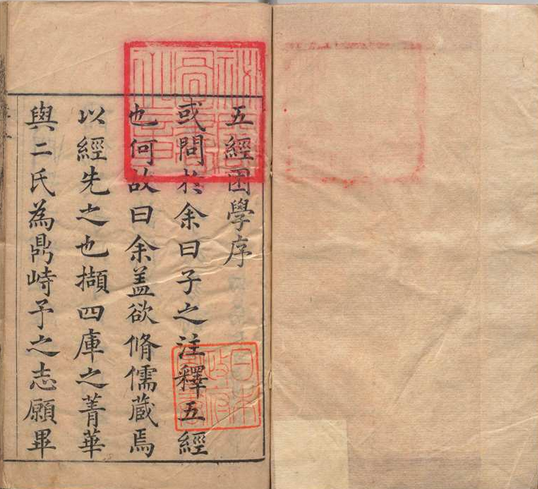 五經困學序
或問於余曰子之注釋五經
也何故曰余盖欲脩儒藏焉
以經先之也擷四庫之菁華
與二氏為鼎峙予之志願畢
日本
政府
圖書